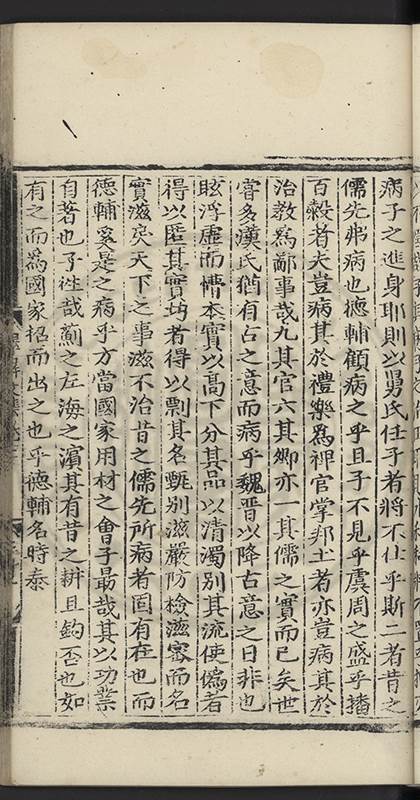 病子之進身耶則以舅氏任子者將不仕乎斯二者昔之
儒先弗病也德輔顧病之乎且子不見乎虞周之盛乎播
百穀者夫豈病其於禮樂爲裨官掌邦土者亦豈病其於
治教爲鄙事哉九其官六其卿亦一其儒之實而已矣世
嘗多漢氏猶有古之意而病乎魏晋以降古意之日非也
眩浮虛而懵本實以高下分其品以清濁別其流使僞者
得以匿其實坊者得以剽其名甄別滋嚴防檢滋審而名
實滋戾天下之事滋不治昔之儒先所病者固有在也而
德輔奚是之病乎方當國家用材之會子最哉其以功業
自著也子徃哉薊之左海之濵其有昔之耕且釣否也如
有之而爲國家招而出之也乎德輔名時泰